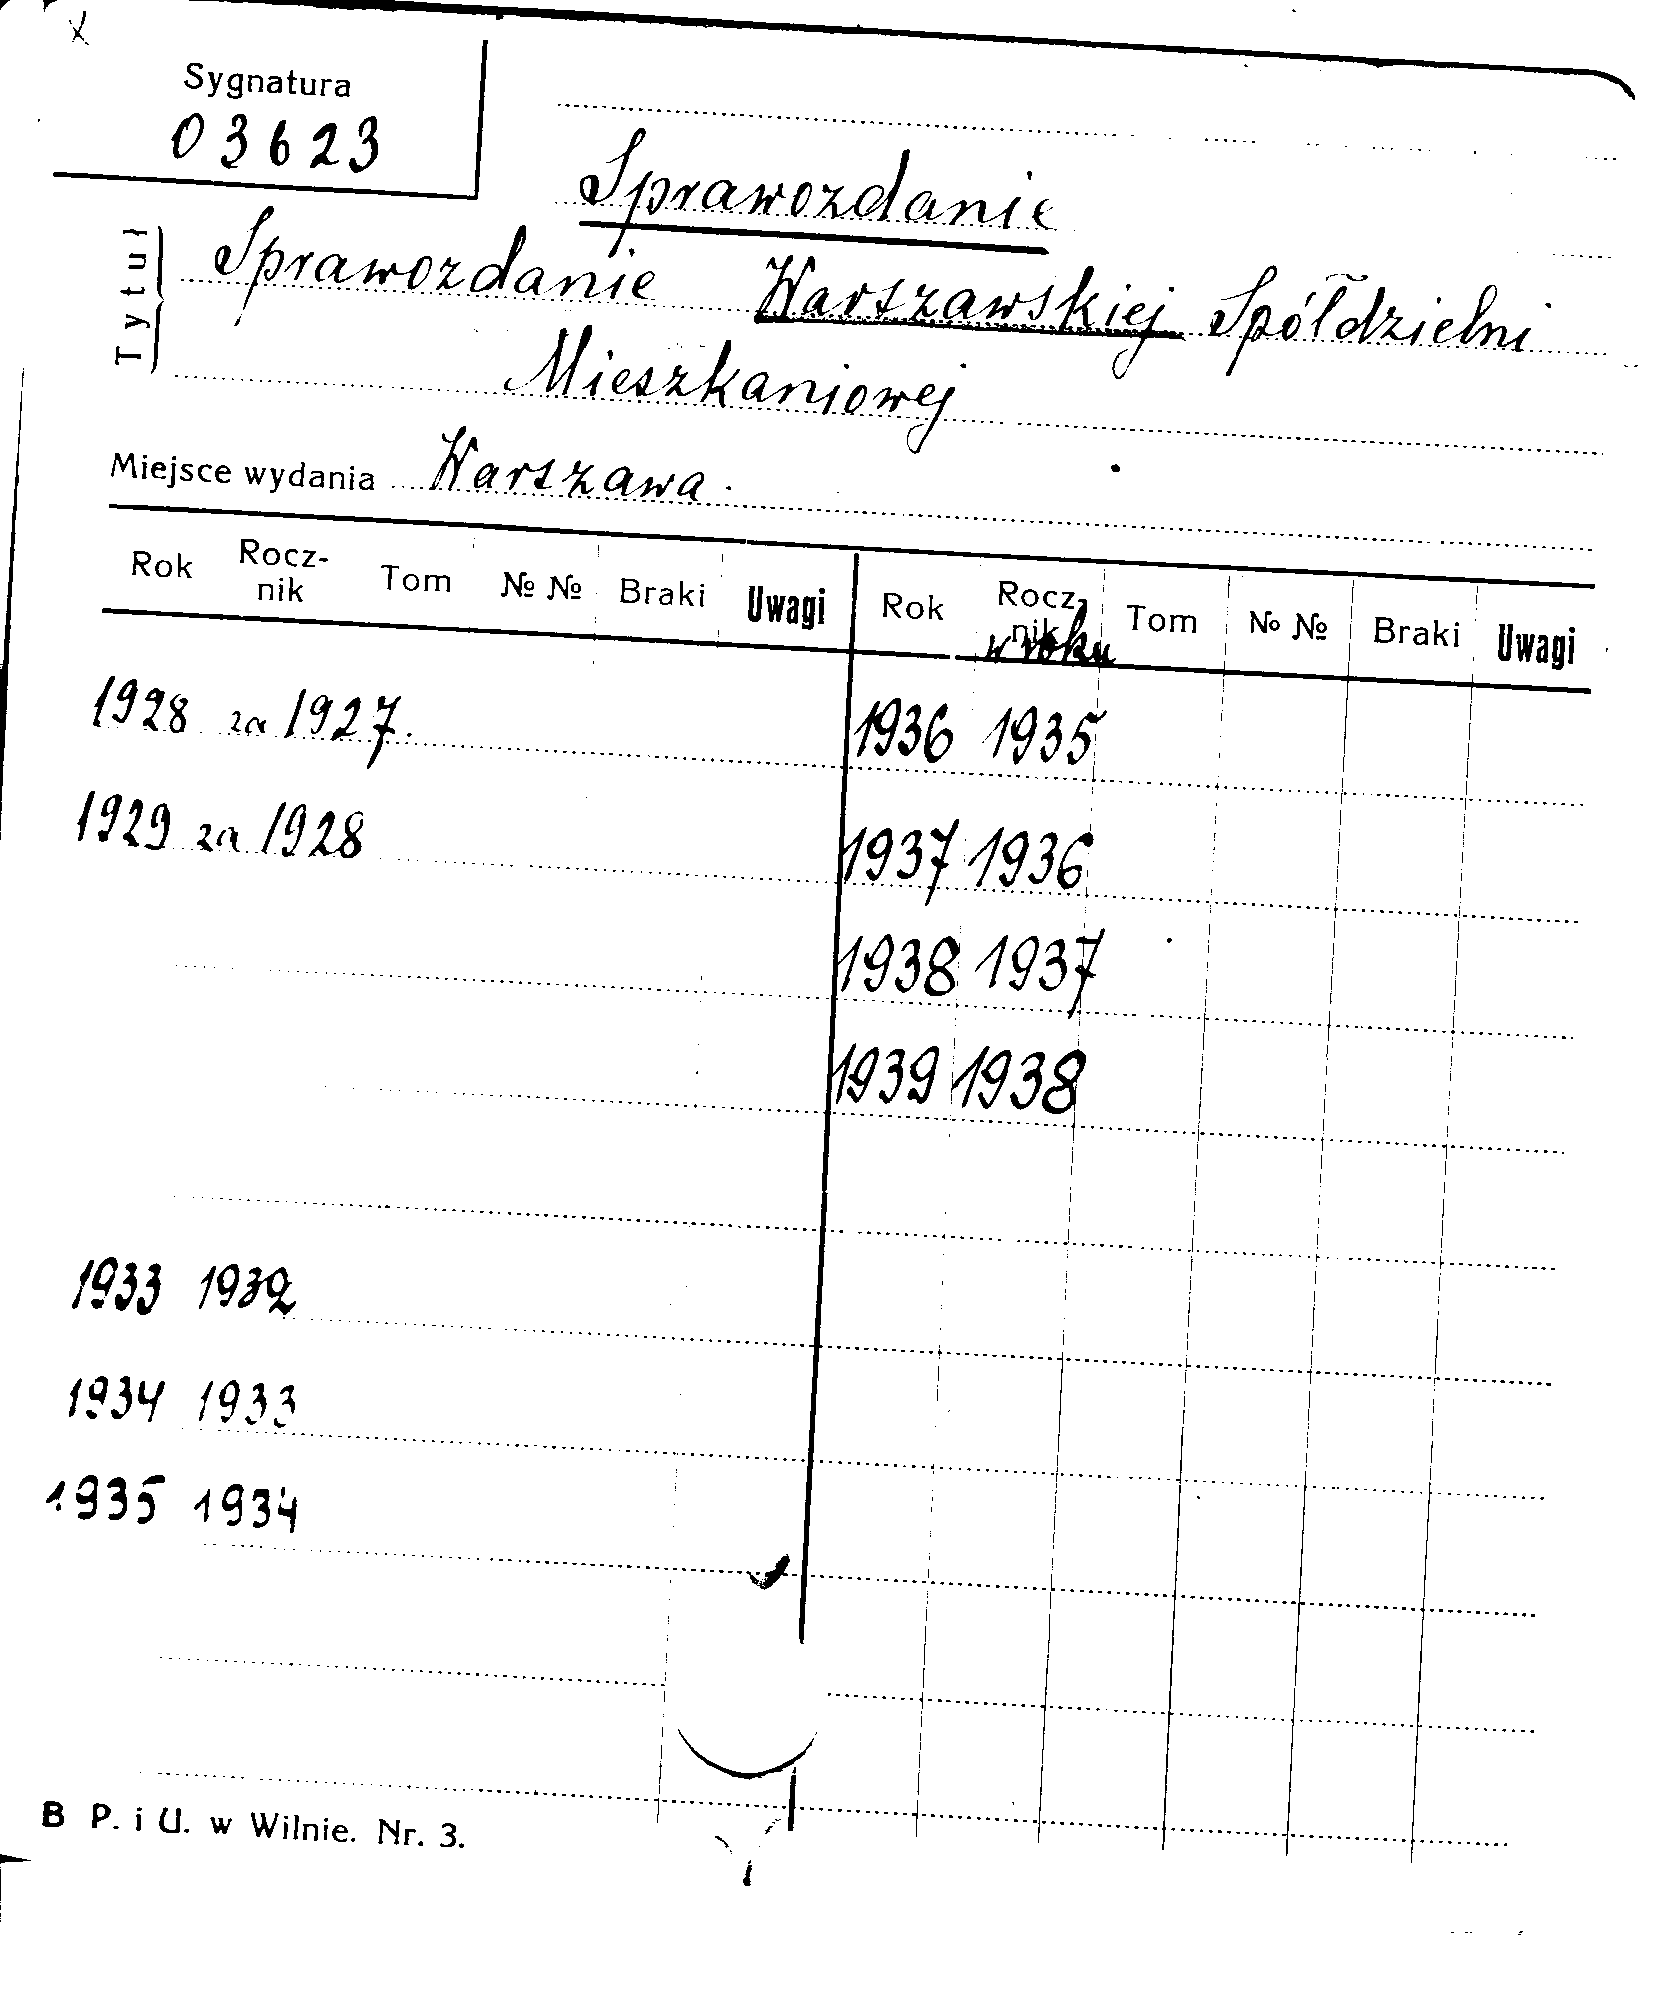 Sygnatura
03623
Sprawozdanie
Tytuł
Sprawozdanie Warszawskiej Spółdzielni
Mieszkaniowej
Miejsce wydania Warszawa.
Rok Rocz-nik Tom № № Braki Uwagi Rok Rocz-nik Tom № № Braki Uwagi
w roku
1928 za 1927. 1936 1935
1929 za 1928 1937 1936
1938 1937
1939 1938
1933 1932
1934 1933
1935 1934
B P. i U. w Wilnie. Nr. 3.